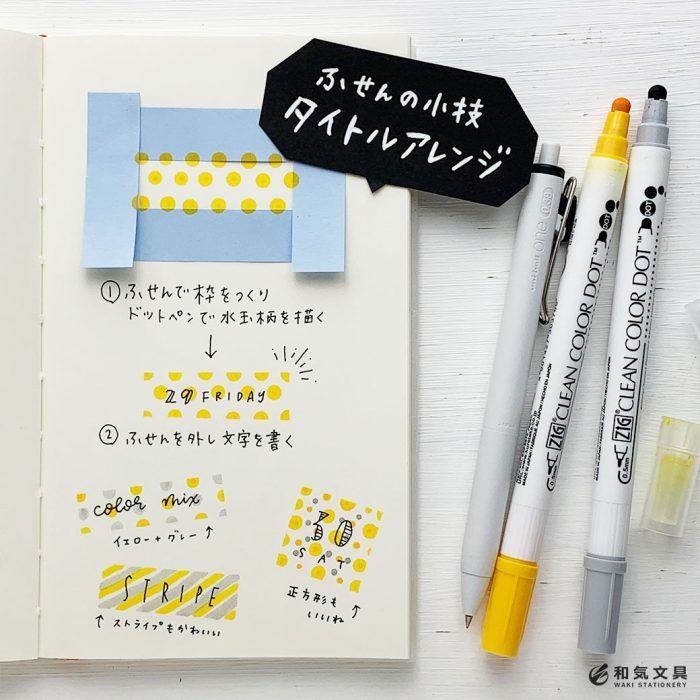 ふせんの小技
タイトルアレンジ
① ふせんで枠をつくり
ドットペンで水玉柄を描く
↓
29 FRIDAY
② ふせんを外し文字を書く
color mix
イエロー+グレー↑
30
SAT
正方形も
いいね ↑
STRIPE
↑ ストライプもかわいい
uni-ball one 0.38
ZIG® CLEAN COLOR DOT™
DOT
0.5mm
ZIG® CLEAN COLOR DOT™
DOT
0.5mm
和気文具
WAKI STATIONERY